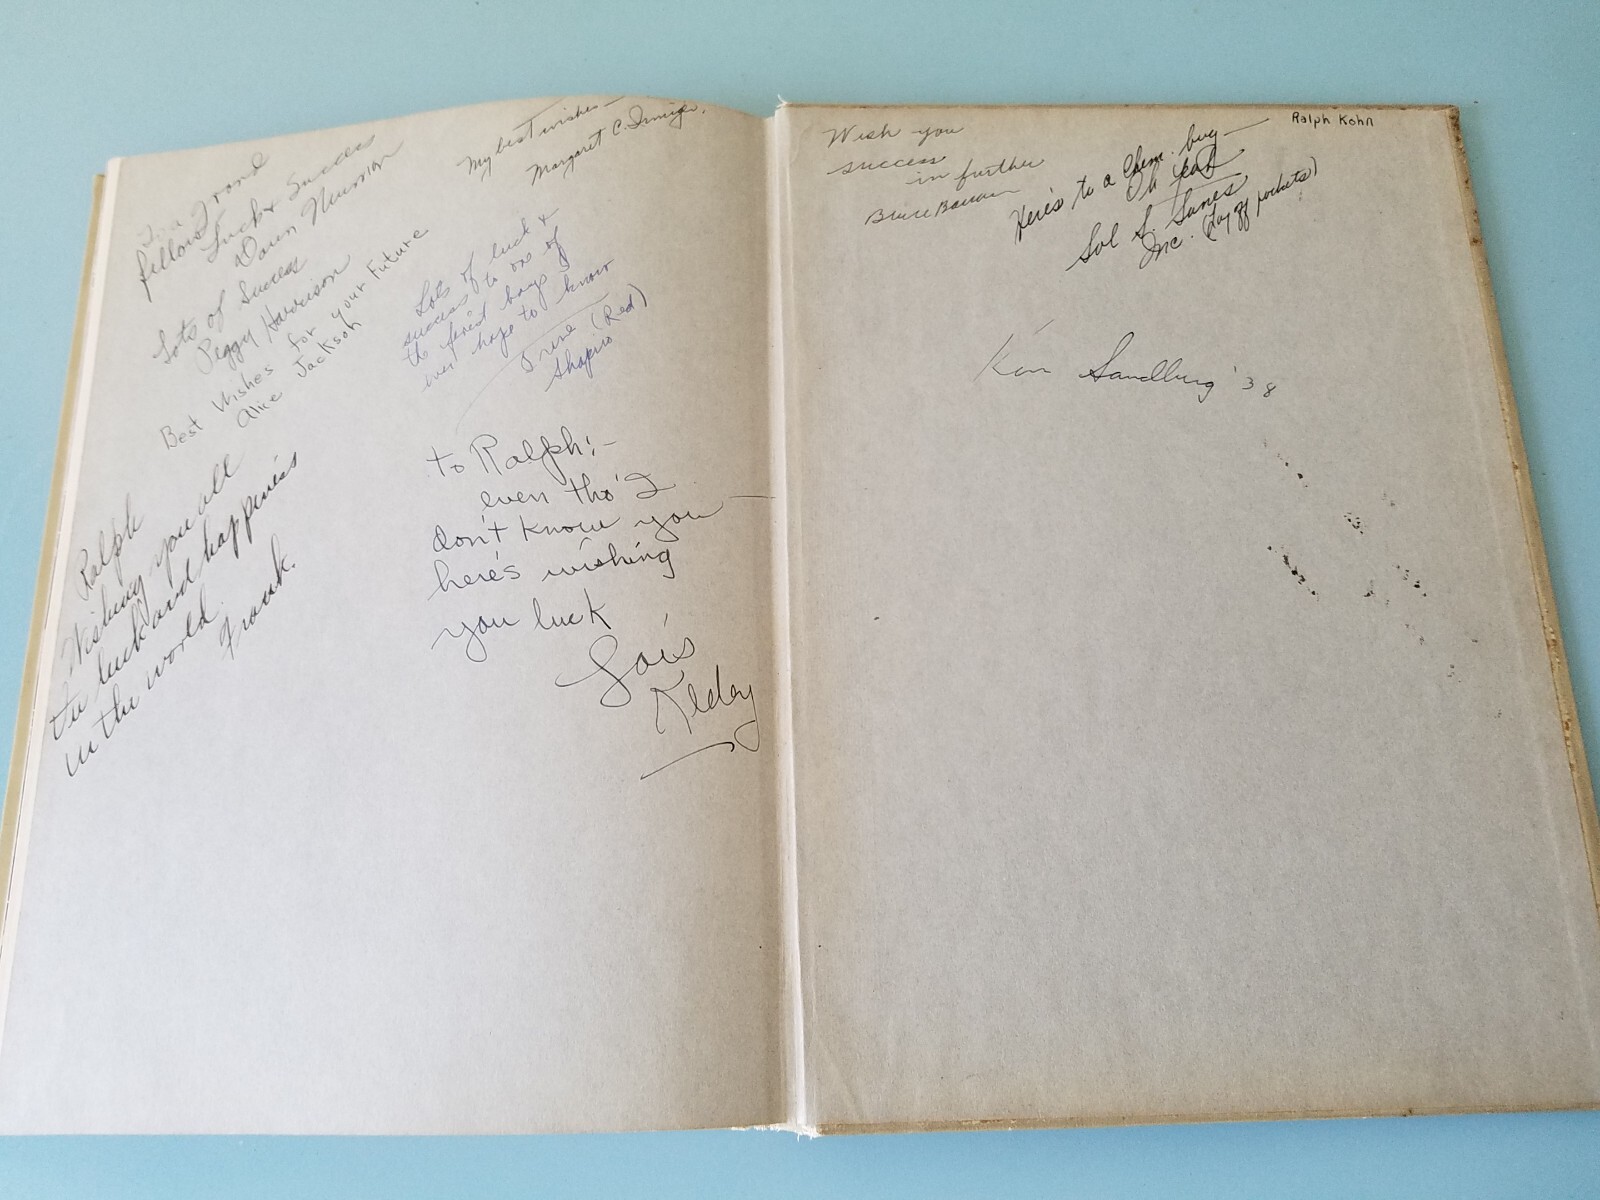 To a Grand
fellow
Luck & Success
Dawn Neuman
Lots of Success
Peggy Harrison
Best Wishes for your Future
Alice Jackson
Ralph
Wishing you all
the luck and happiness
in the world.
Frank.
My best wishes—
Margaret C.
Lots of luck &
success to one of
the finest boys I
ever hope to know
Irene (Red)
Shapiro
to Ralph:-
even tho' I
don't know you—
here's wishing
you luck
Lois
Wish you
success
in further
Bruce
Here's to a Chem. bug—
Oh yeah
Sol S.
Inc. pockets)
Ralph Kohn
Ken Sandburg '38